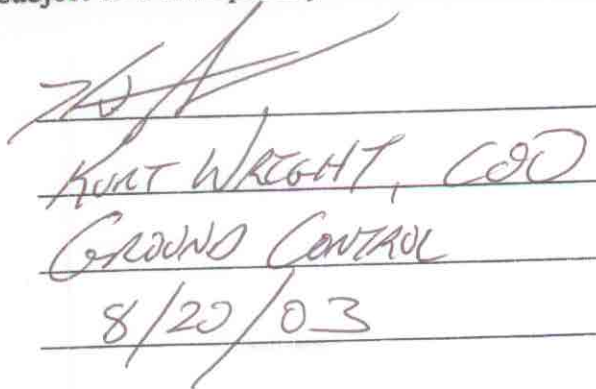 KURT WRIGHT, COO
GROUND CONTROL
8/20/03